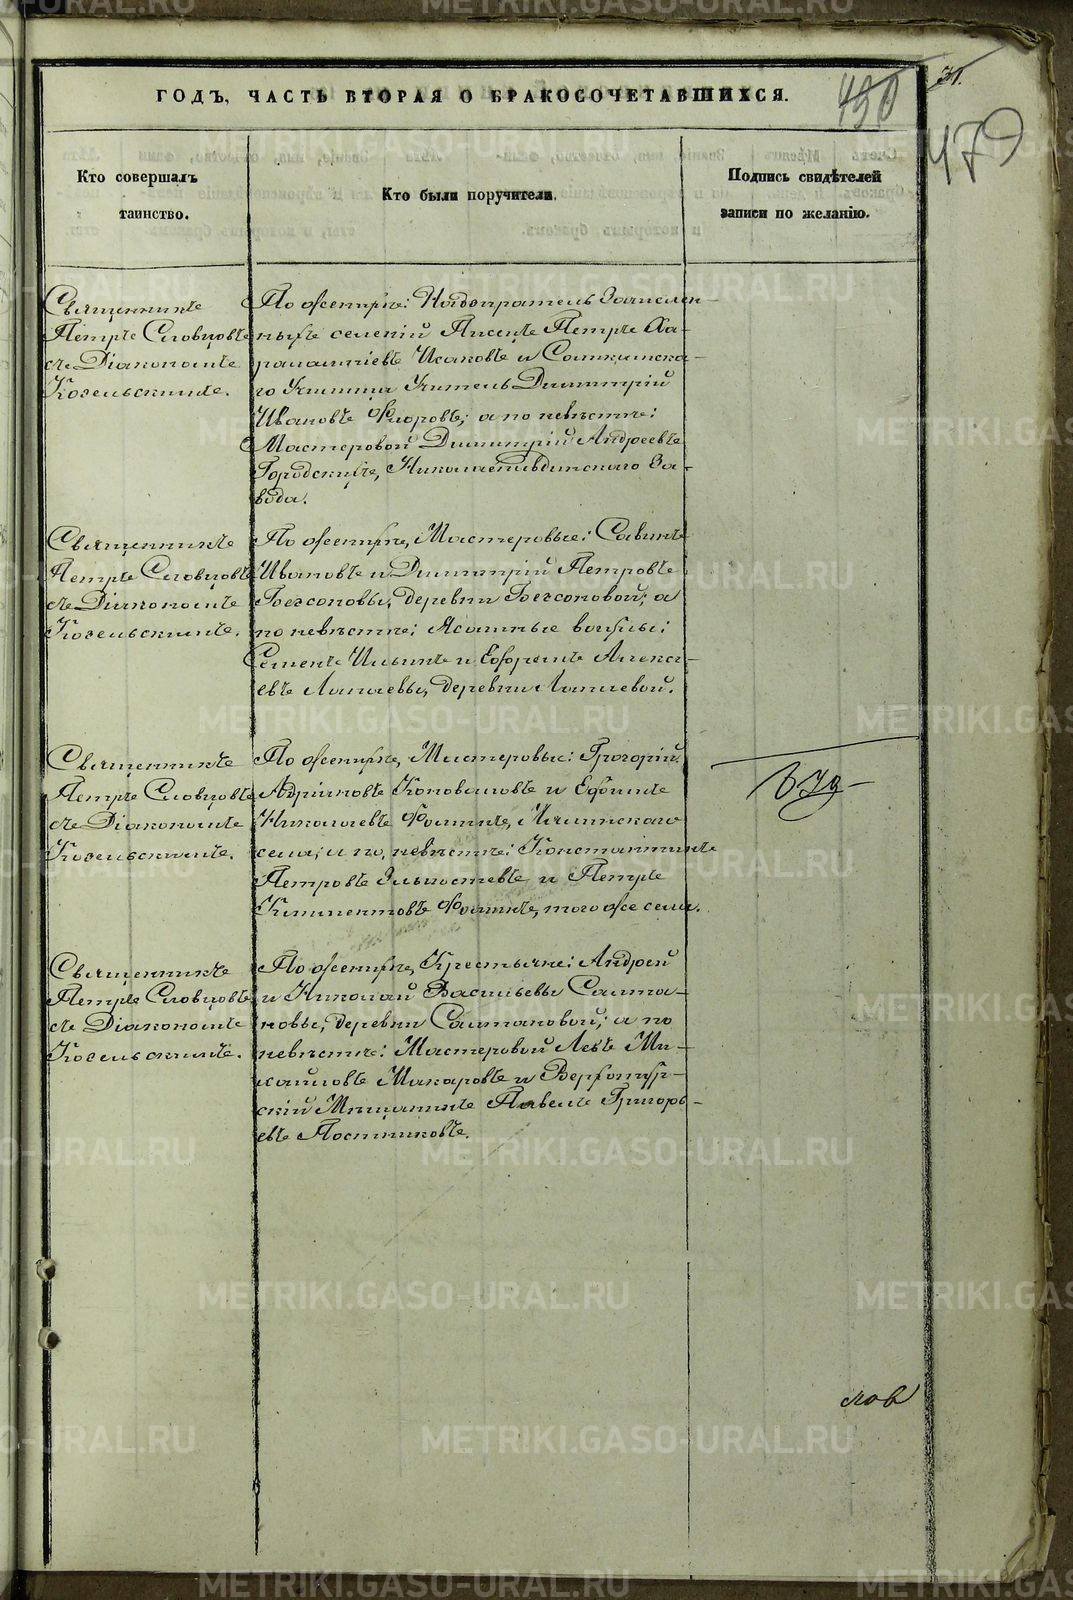 31.
490
479
ГОДЪ, ЧАСТЬ ВТОРАЯ О БРАКОСОЧЕТАВШИХСЯ.
Кто совершалъ
таинство.
Кто были поручители.
Подпись свидѣтелей
записи по желанію.
Священникъ
Петръ Словцовъ
съ Діакономъ
Козельскимъ.
По женихѣ: Надзиратель Зачислен-
ныхъ селеній Писецъ Петръ Ха-
ралампіевъ Исаковъ и Салкинска-
го Училища Учитель Димитрій
Ивановъ Флоровъ; а по невѣстѣ:
Мастеровой Димитрій Андреевъ
Городскихъ, Николаепавдинскаго За-
вода.
Священникъ
Петръ Словцовъ
съ Діакономъ
Козельскимъ.
По женихѣ, Мастеровые: Савинъ
Ивановъ и Димитрій Петровъ
деревни
а
по невѣстѣ: Ясашные вогулы:
Семенъ Ильинъ и Ефремъ Алексѣ-
евъ Лапаевы, деревни Лапаевой.
Священникъ
Петръ Словцовъ
съ Діакономъ
Козельскимъ.
По женихѣ, Мастеровые: Григорій
Адріановъ Коноваловъ и Ефимъ
Николаевъ Фоминъ,
села; а по невѣстѣ: Константинъ
Петровъ и Петръ
Климентовъ Фоминъ, того же села.
Священникъ
Петръ Словцовъ
съ Діакономъ
Козельскимъ.
По женихѣ, Крестьяне: Андрей
и Николай Васильевы Салта-
новы, деревни Салтановой; а по
невѣстѣ: Мастеровой Левъ Ми-
хайловъ Макаровъ и Верхотур-
скій Мѣщанинъ Павелъ Григорь-
евъ Постниковъ.
лов
METRIKI.GASO-URAL.RU